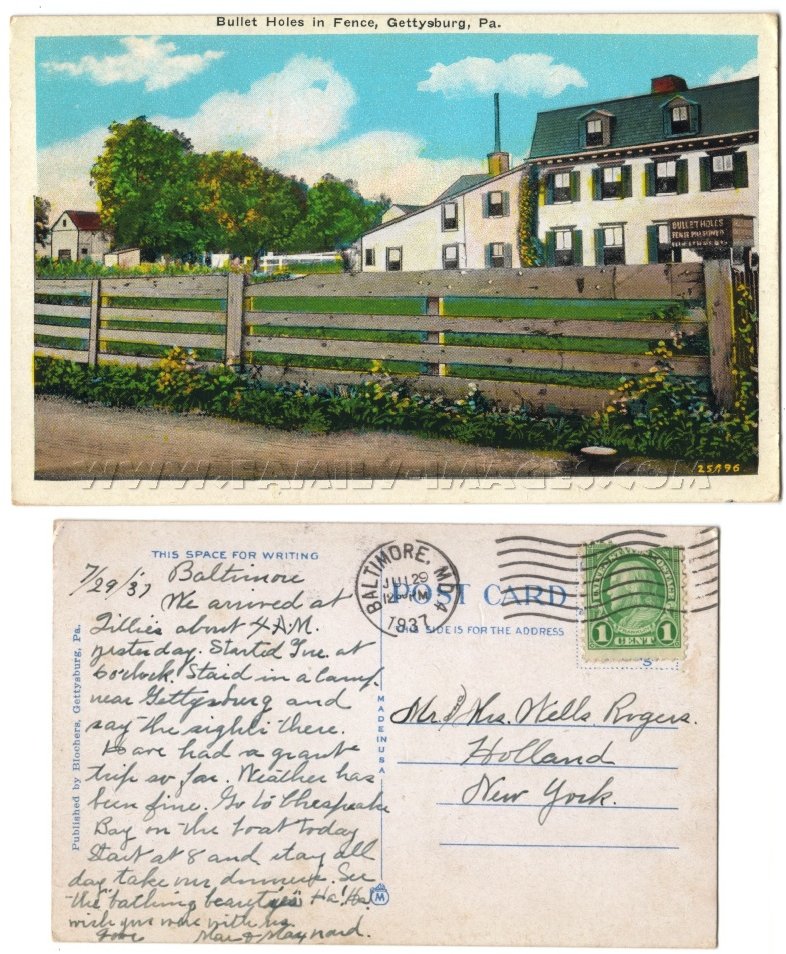 Bullet Holes in Fence, Gettysburg, Pa.
BULLET HOLES
25796
WWW.FAMILY-IMAGES.COM
THIS SPACE FOR WRITING
7/29/37 Baltimore
We arrived at
Tillies about 4 A.M.
yesterday. Started Tue. at
6 o'clock. Staid in a camp
near Gettysburg and
say the sights there.
Have had a grant
trip so far. Weather has
been fine. Go to Chespeake
Bay on the boat today
Start at 8 and stay all
day take our dinner. See
the "bathing beauties" Ha! Ha!
wish you were with us
Love Mae & Maynard.
Published by Blochers, Gettysburg, Pa.
MADE IN U.S.A.
M
BALTIMORE, MD. 4
JUL 29
12 PM
1937
POST CARD
THIS SIDE IS FOR THE ADDRESS
1 CENT 1
S
Mr. & Mrs. Wells Rogers.
Holland
New York.